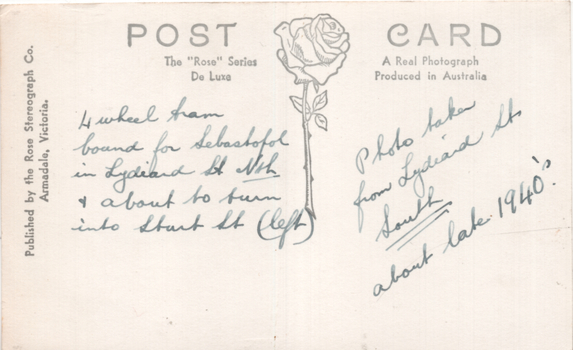 POST CARD
The "Rose" Series
De Luxe
A Real Photograph
Produced in Australia
Published by the Rose Stereograph Co.
Armadale, Victoria.
4 wheel tram
bound for Sebastopol
in Lydiard St Nth
& about to turn
into Sturt St (left)
Photo taken
from Lydiard St
South
about late 1940's.